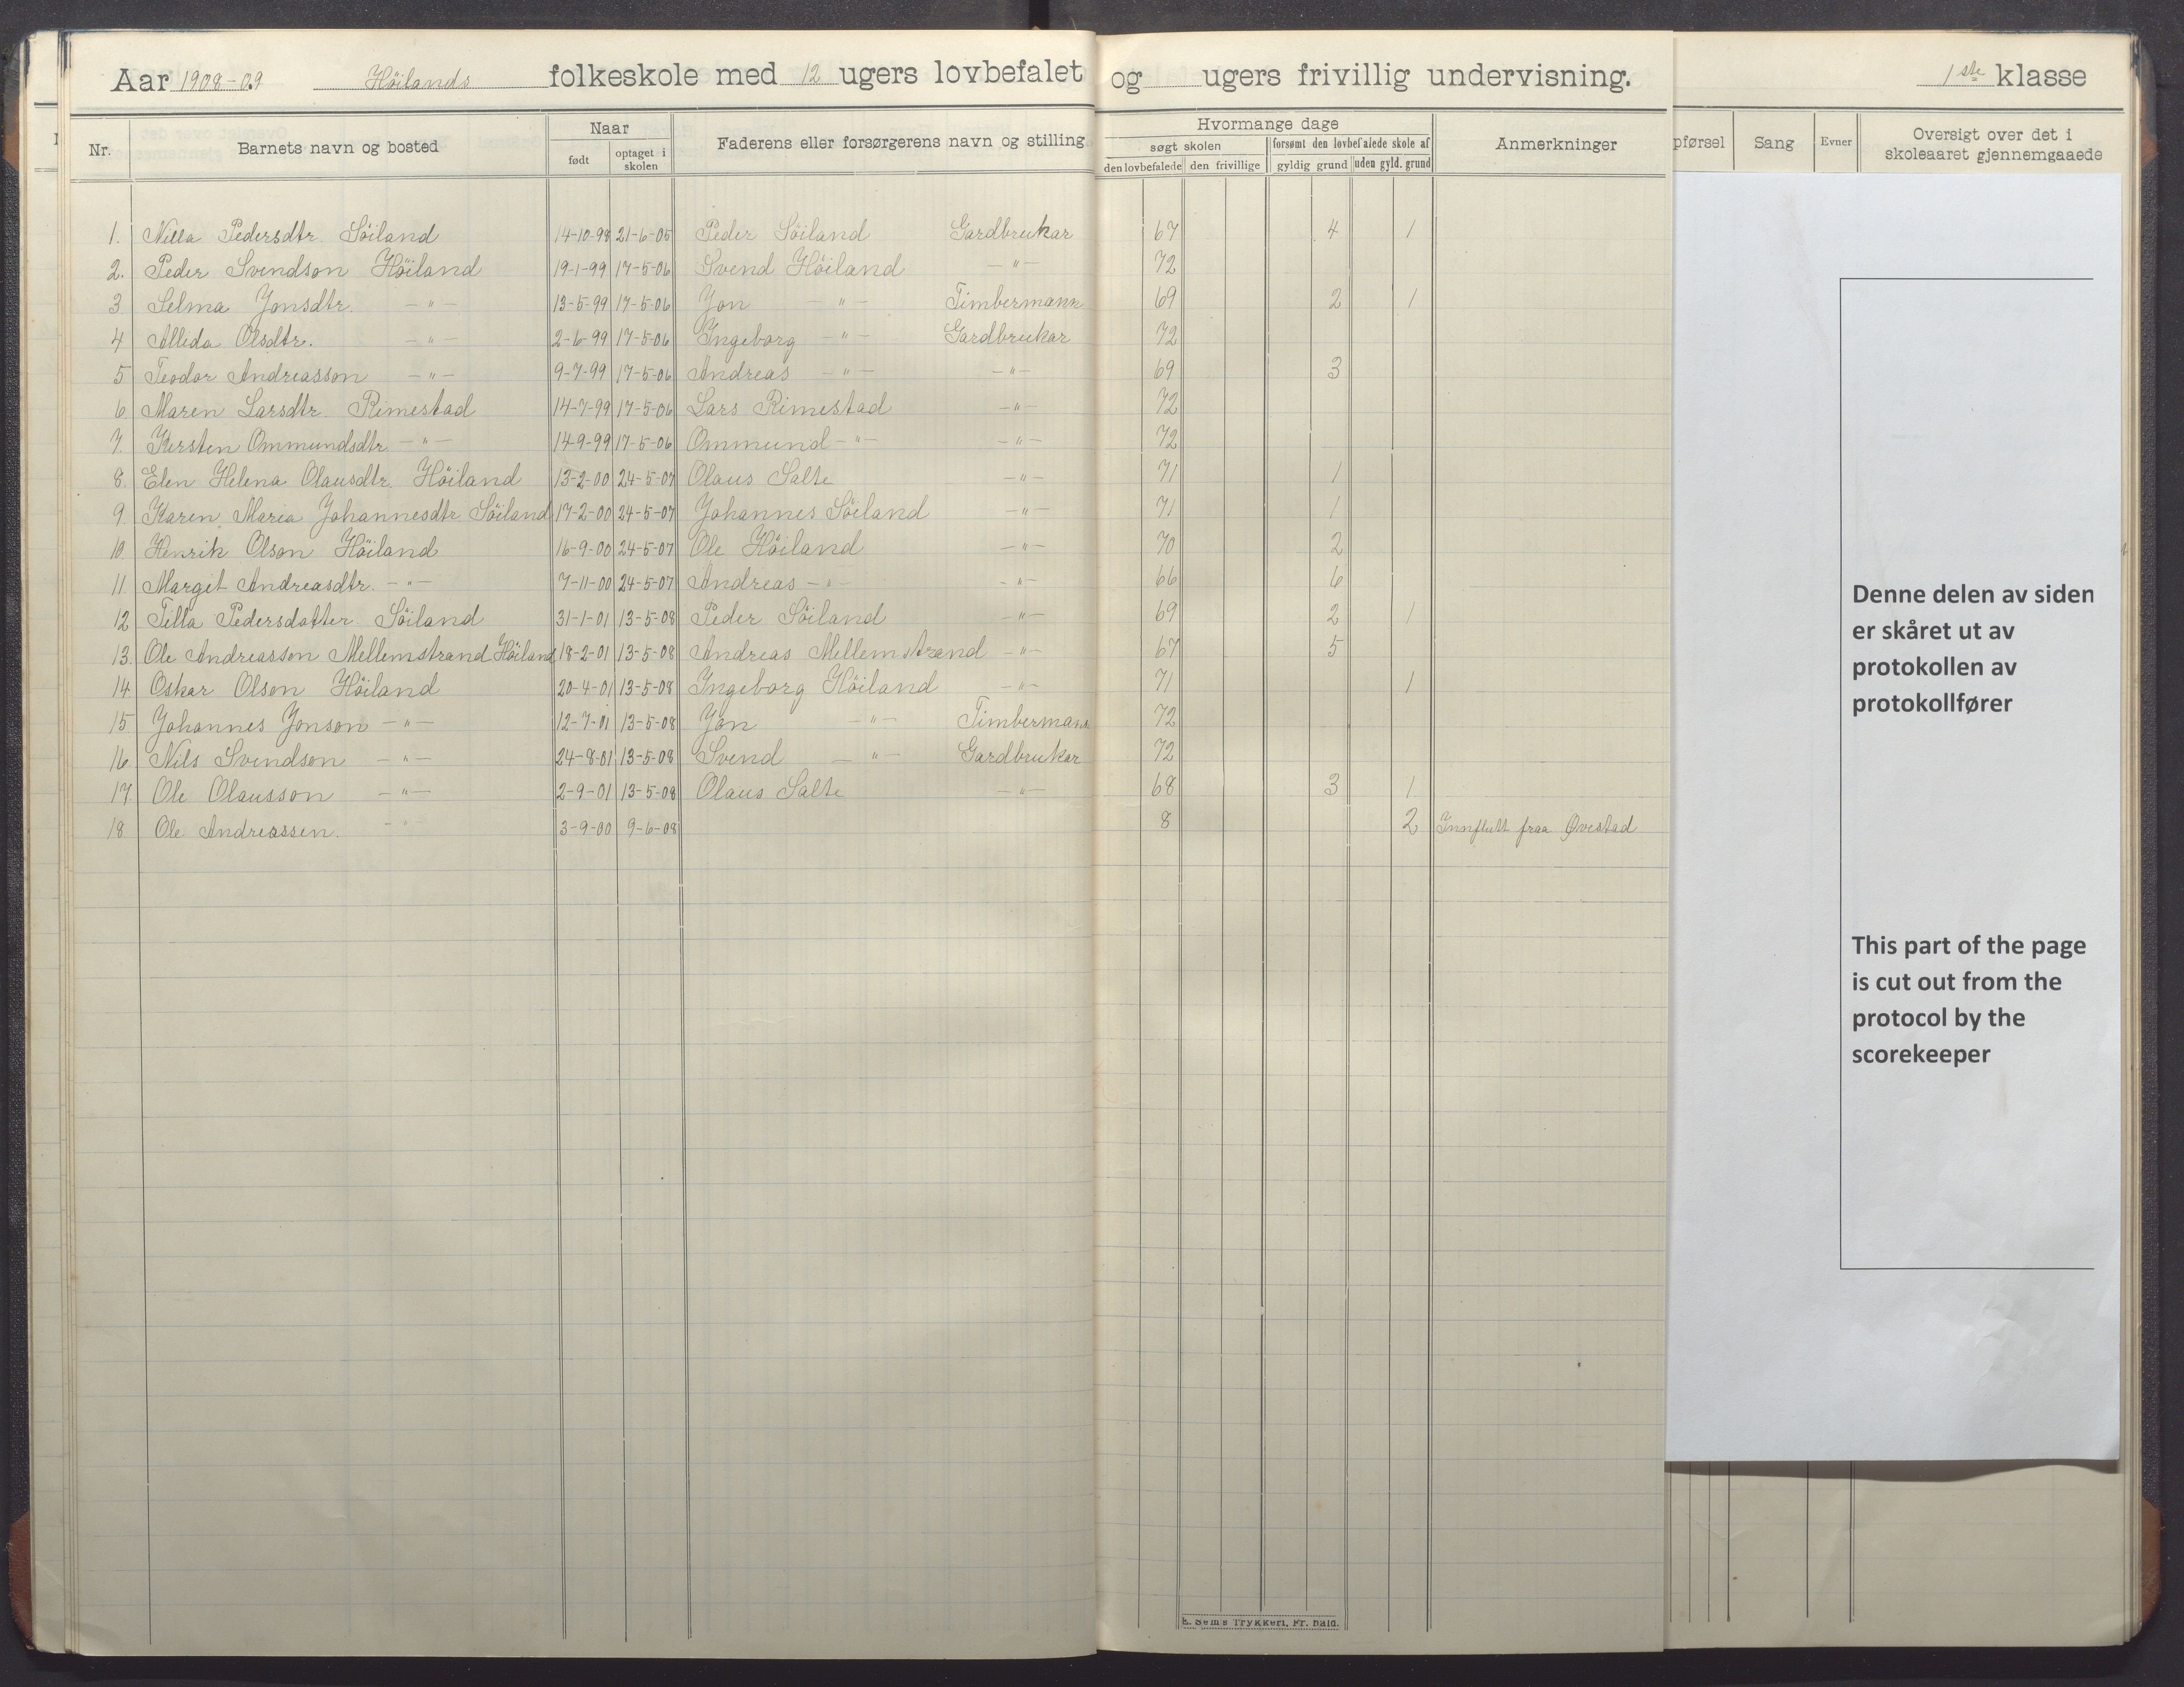 Aar 1908-09 Höilands folkeskole med 12 ugers lovbefalet og ugers frivillig undervisning. 1ste klasse
Nr. Barnets navn og bosted Naar født optaget i skolen Faderens eller forsørgerens navn og stilling Hvormange dage søgt skolen den lovbefalede den frivillige forsømt den lovbefalede skole af gyldig grund uden gyld. grund Anmerkninger pførsel Sang Evner Oversigt over det i skoleaaret gjennemgaaede
1. Nilla Pedersdtr. Söiland 14-10-98 21-6-05 Peder Söiland Gardbrukar 67 4 1
2. Peder Svendson Höiland 19-1-99 17-5-06 Svend Höiland -"- 72
3 Selma Jonsdtr. -"- 13-5-99 17-5-06 Jon -"- Timbermann 69 2 1
4 Allida Olsdtr. -"- 2-6-99 17-5-06 Ingeborg -"- Gardbrukar 72
5 Teodor Andreasson -"- 9-7-99 17-5-06 Andreas -"- -"- 69 3
6 Maren Larsdtr. Rimestad 14-7-99 17-5-06 Lars Rimestad -"- 72
7. Kirsten Ommundsdtr -"- 14-9-99 17-5-06 Ommund -"- -"- 72
8. Elen Helena Olausdtr. Höiland 13-2-00 24-5-07 Olaus Salte -"- 71 1
9. Karen Maria Johannesdtr Söiland 17-2-00 24-5-07 Johannes Söiland -"- 71 1
10. Henrik Olson Höiland 16-9-00 24-5-07 Ole Höiland -"- 70 2
11. Marget Andreasdtr. -"- 7-11-00 24-5-07 Andreas -"- -"- 66 6
12 Tilla Pedersdatter Söiland 31-1-01 13-5-08 Peder Söiland -"- 69 2 1
13. Ole Andreasson Mellemstrand Höiland 18-2-01 13-5-08 Andreas Mellemstrand -"- 67 5
14 Oskar Olson Höiland 20-4-01 13-5-08 Ingeborg Höiland -"- 71 1
15 Johannes Jonson -"- 12-7-01 13-5-08 Jon -"- Timbermann 72
16 Nils Svendson -"- 24-8-01 13-5-08 Svend -"- Gardbrukar 72
17 Ole Olausson -"- 2-9-01 13-5-08 Olaus Salte -"- 68 3 1
18 Ole Andreassen. -"- 3-9-00 9-6-08 8 2 Innflutt fraa Øvestad
Denne delen av siden
er skåret ut av
protokollen av
protokollfører
This part of the page
is cut out from the
protocol by the
scorekeeper
E. Sem's Trykkeri, Fr. hald.